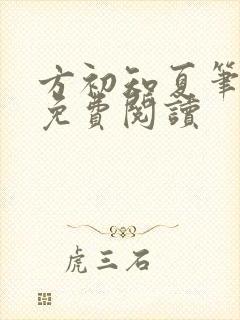 方初知夏筆
免費閱讀
虎三石